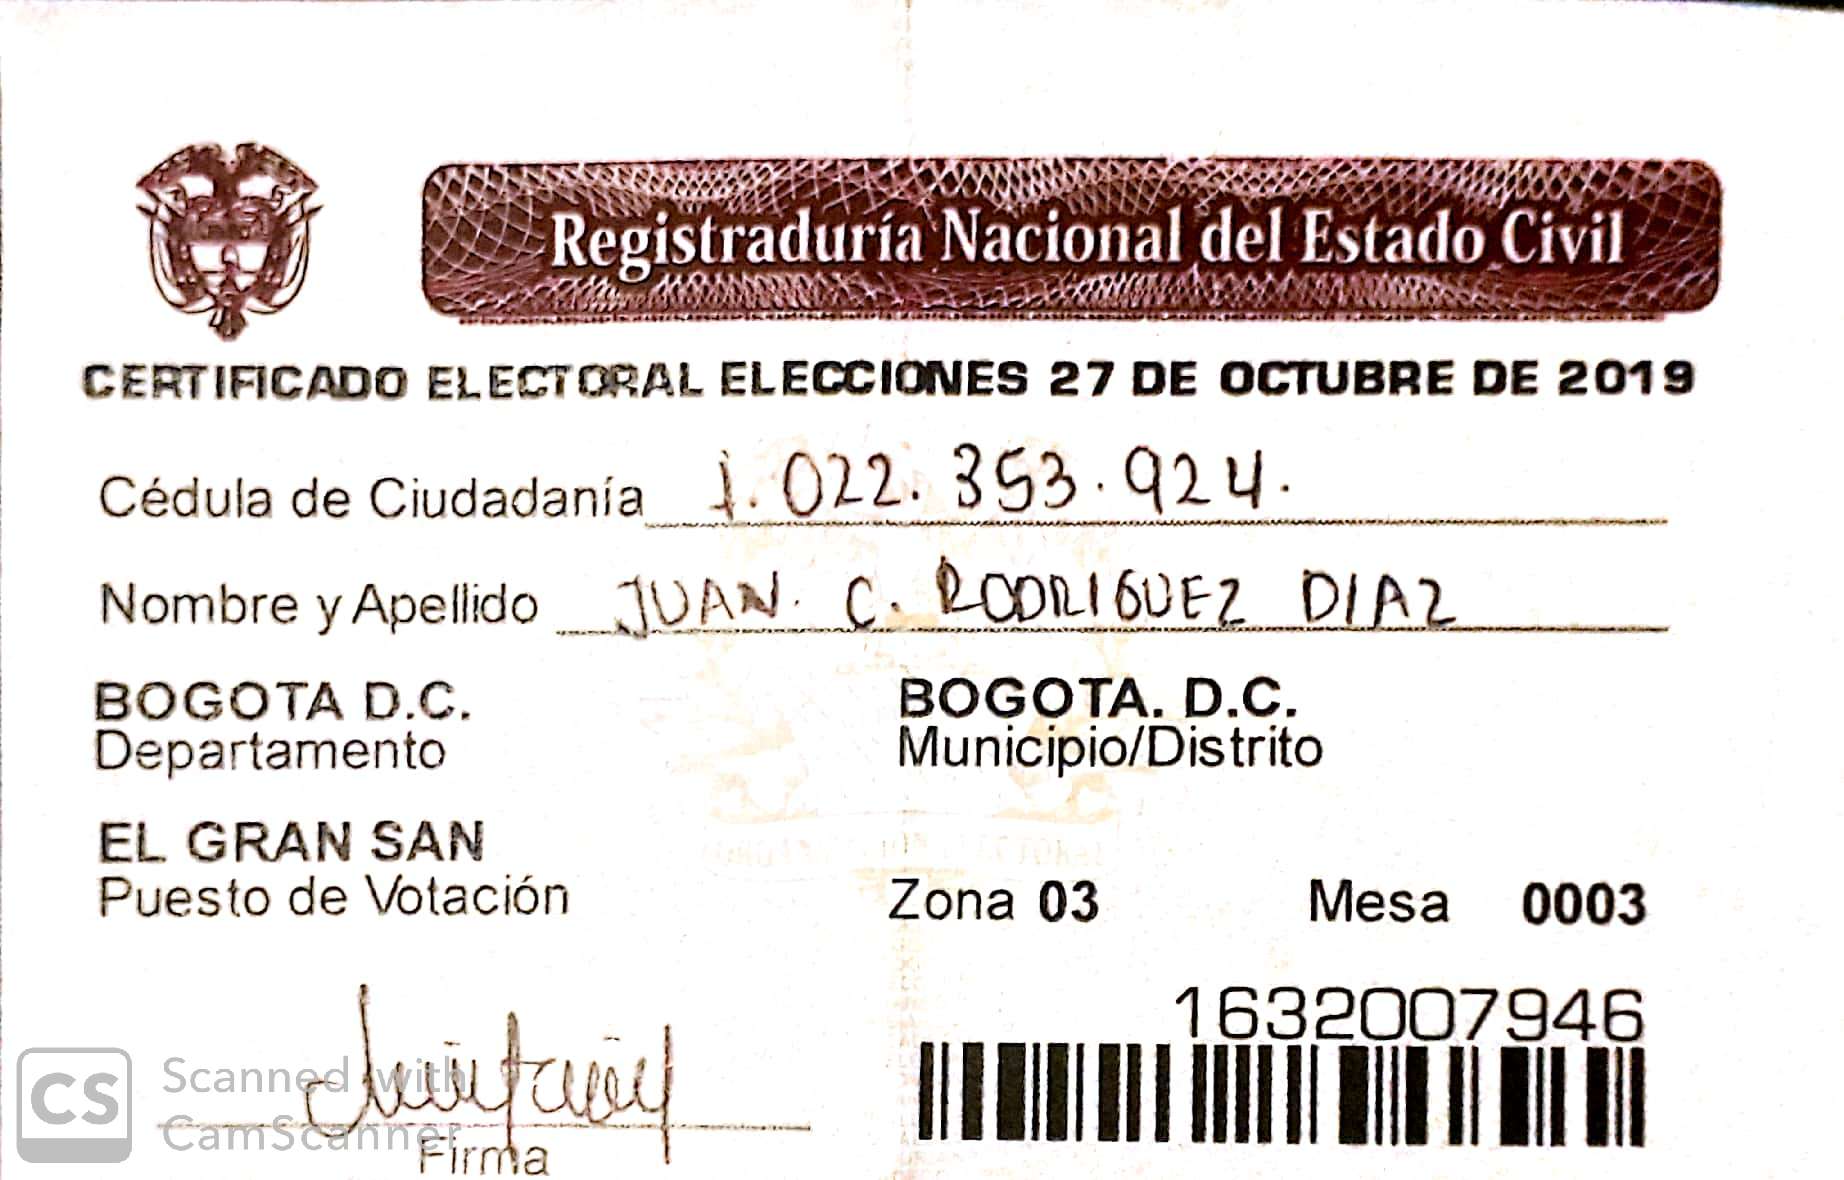 Registraduría Nacional del Estado Civil
CERTIFICADO ELECTORAL ELECCIONES 27 DE OCTUBRE DE 2019
Cédula de Ciudadanía 1.022.353.924.
Nombre y Apellido JUAN. C. RODRIGUEZ DIAZ
BOGOTA D.C. BOGOTA. D.C.
Departamento Municipio/Distrito
EL GRAN SAN
Puesto de Votación Zona 03 Mesa 0003
1632007946
CS Scanned with
CamScanner
Firma